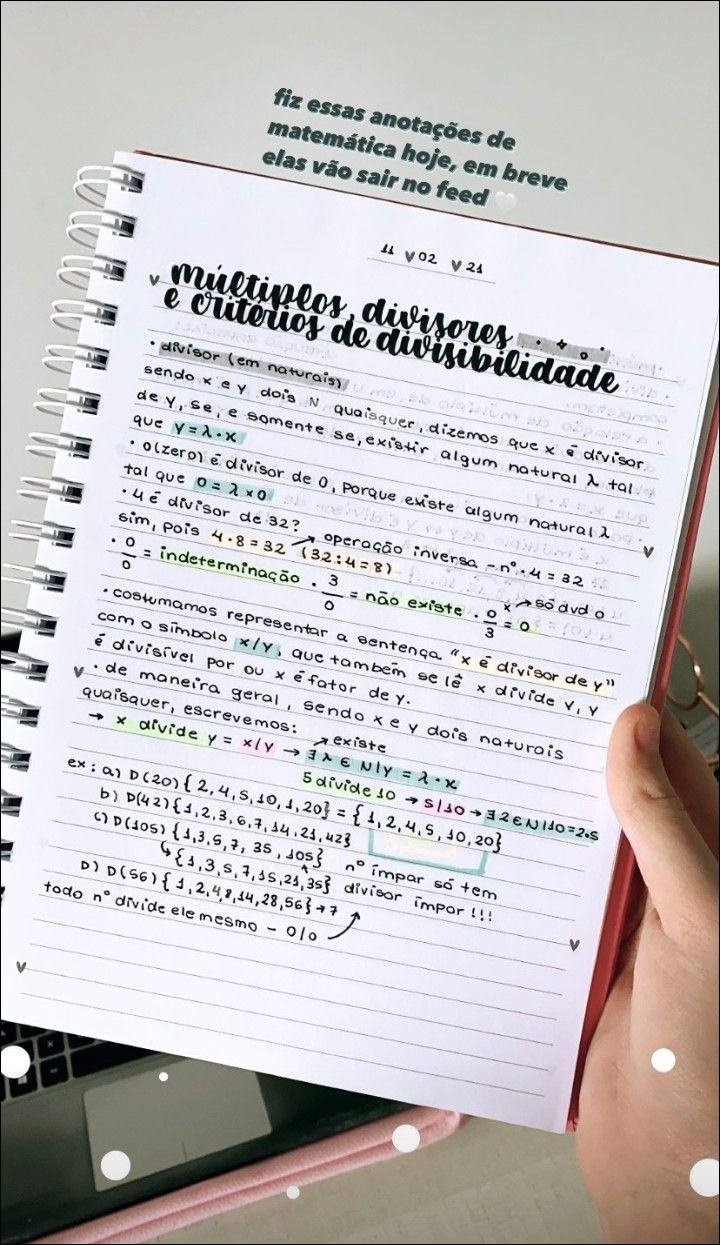 fiz essas anotações de
matemática hoje, em breve
elas vão sair no feed 🤍
11 ♥ 02 ♥ 21
♥ múltiplos, divisores
e critérios de divisibilidade
• divisor (em naturais)
sendo x e y dois N quaisquer, dizemos que x é divisor
de y, se, e somente se, existir algum natural λ tal
que y = λ • x
• 0 (zero) é divisor de 0, porque existe algum natural λ
tal que 0 = λ x 0
• 4 é divisor de 32?
sim, pois 4 • 8 = 32 (32 : 4 = 8) → operação inversa - nº • 4 = 32
• 0/0 = indeterminação • 3/0 = não existe • 0/3 = 0 x → só dvd 0
• costumamos representar a sentença "x é divisor de y"
com o símbolo x/y, que também se lê x divide y, y
é divisível por ou x é fator de y.
♥ • de maneira geral, sendo x e y dois naturais
quaisquer, escrevemos: → existe
→ x divide y = x/y → ∃ λ ∈ N/y = λ • x
5 divide 10 → 5/10 → ∃ 2 ∈ N/10 = 2•5
ex: a) D(20) { 2, 4, 5, 10, 1, 20} = { 1, 2, 4, 5, 10, 20}
b) D(42) { 1, 2, 3, 6, 7, 14, 21, 42}
c) D(105) { 1, 3, 5, 7, 35, 105} nº ímpar só tem
↳ { 1, 3, 5, 7, 15, 21, 35} divisor ímpar !!!
D) D(56) { 1, 2, 4, 8, 14, 28, 56} → 7
todo nº divide ele mesmo - 0/0